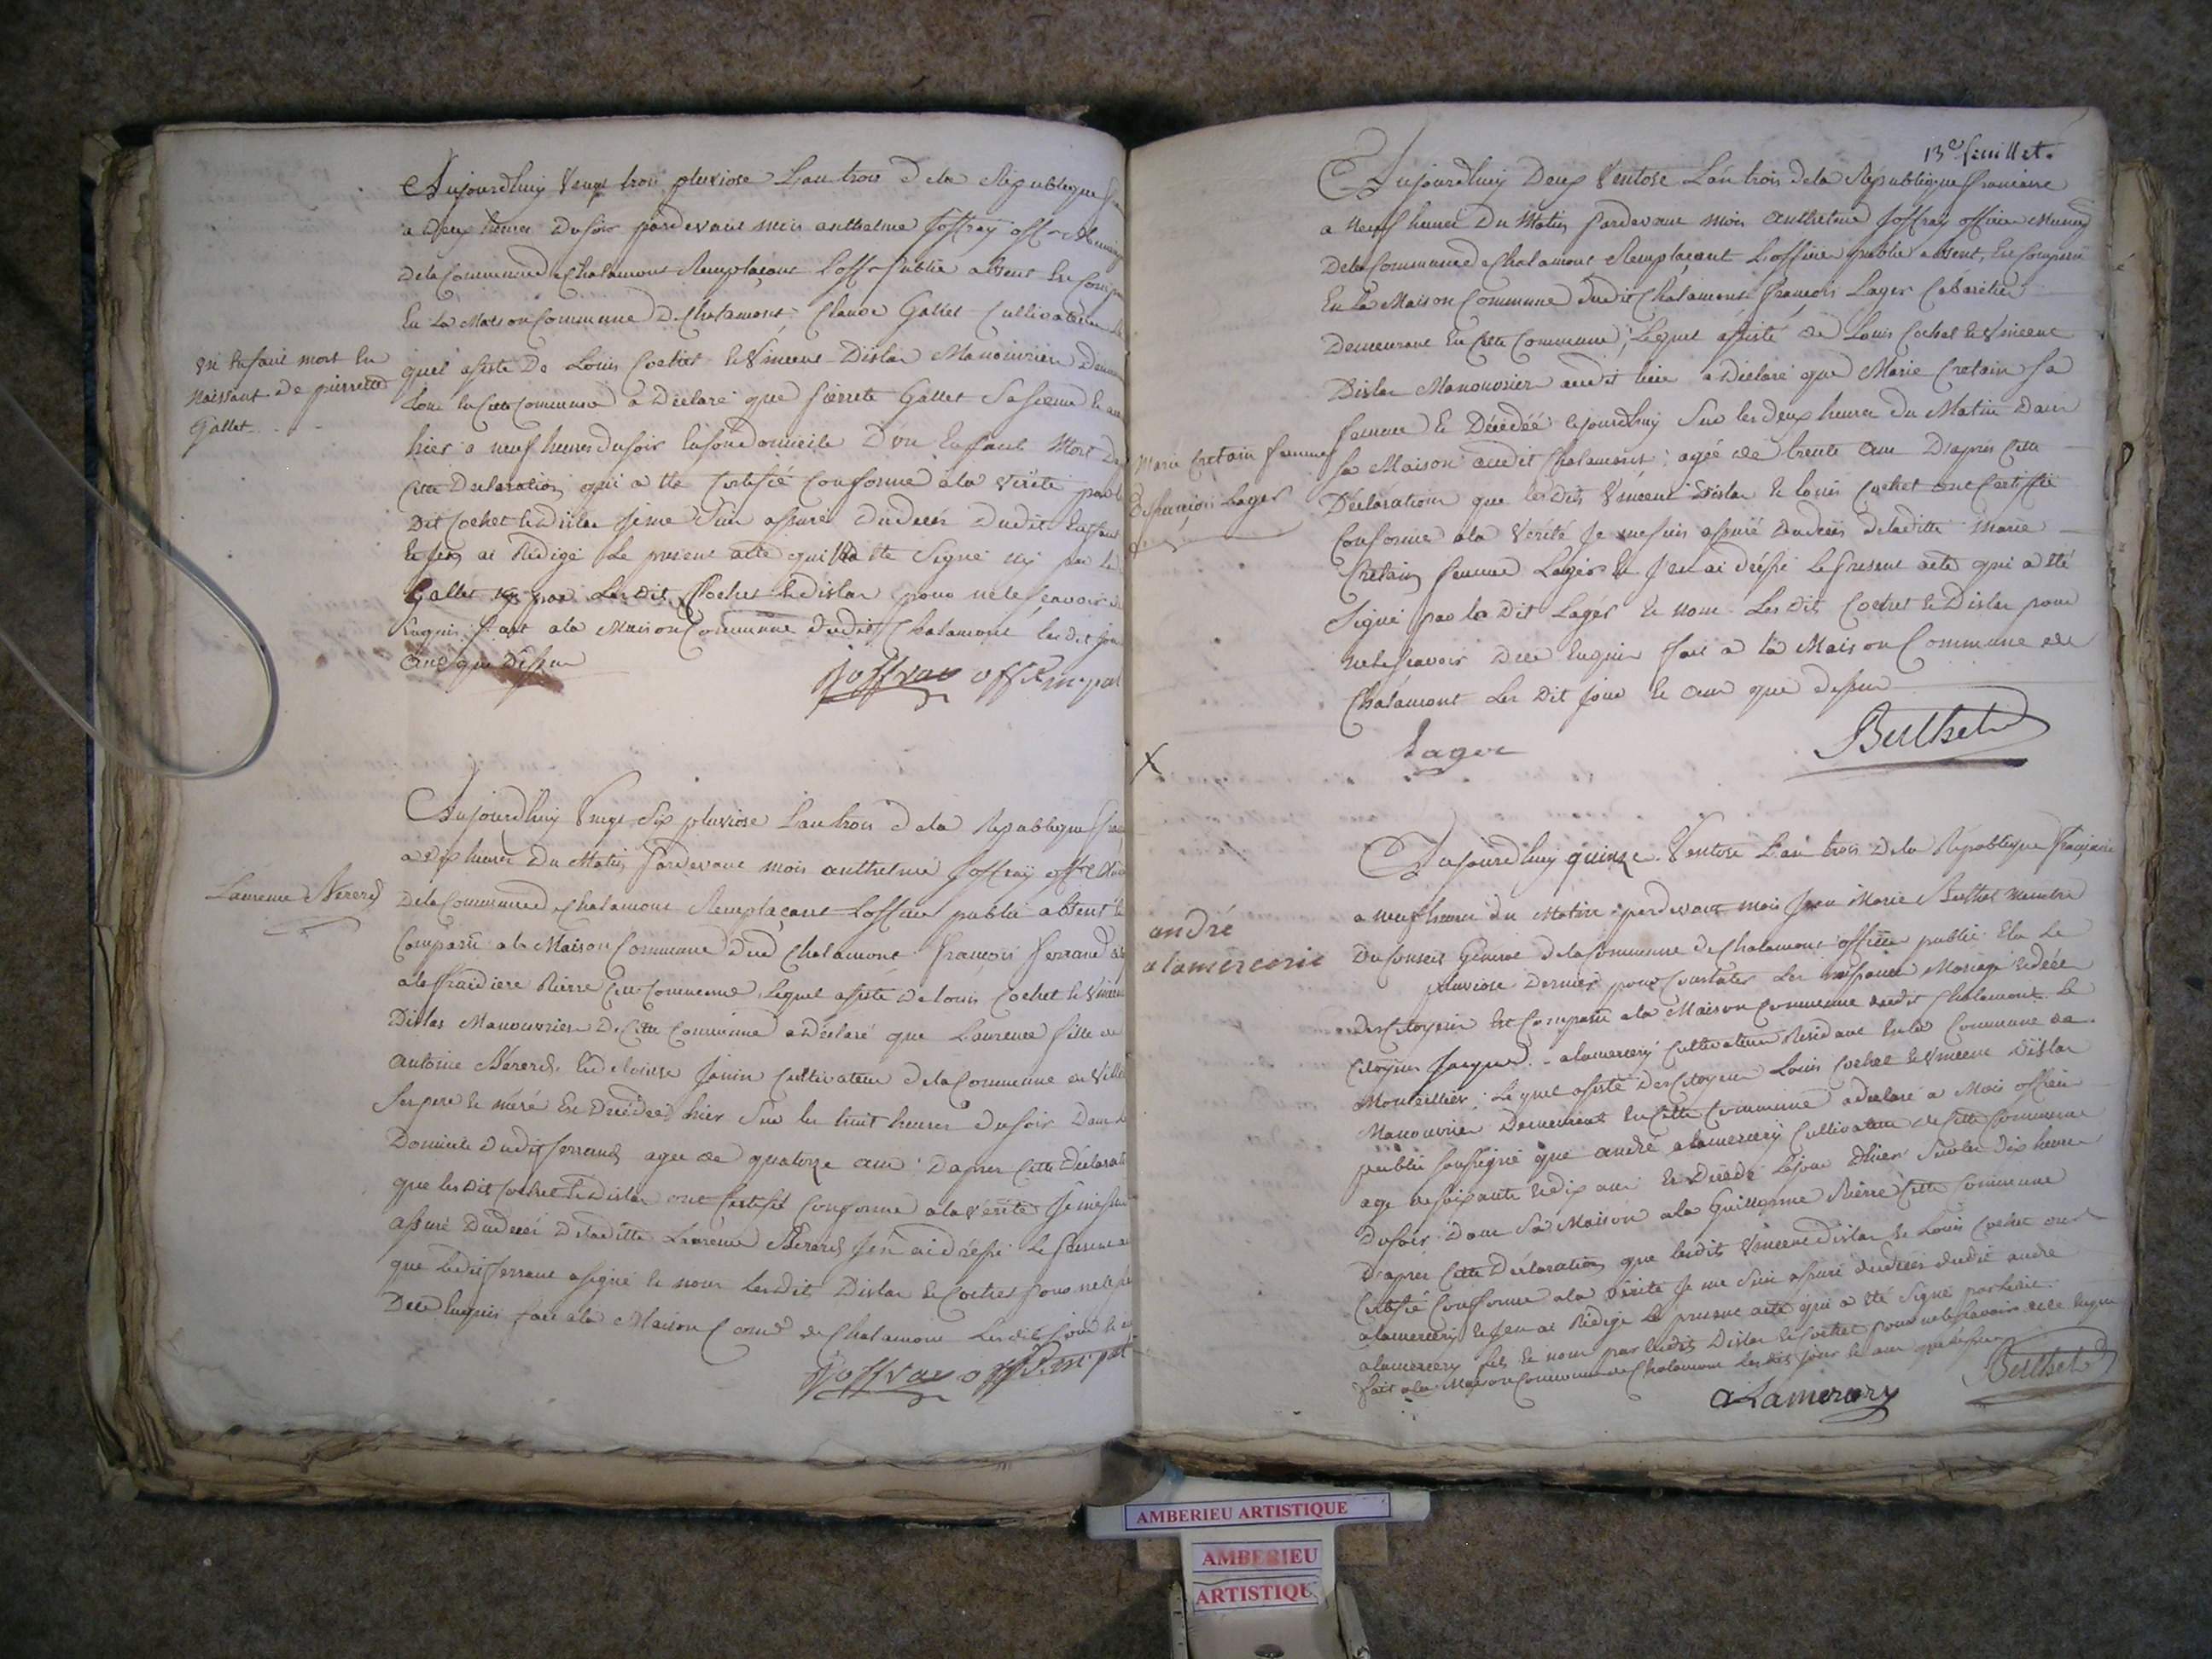 Aujourdhuy Vingt trois pluviose L'an trois de la Republique
a deux heures du soir pardevant mois anthelme Joffray off.
De la Commune de Chalamont Remplaçant L'off. public absent Est
En La Maison Commune De Chalamont, Claude Gallet Cultivateur
quel assisté De Louis Cochet et Vincent Dislar Manouvrier
en cette Commune a Déclaré que pierrette Gallet Sa femme
hier a neuf heures du soir En son domicile D'un Enfant Mort
Cette Declaration qui a été Certifié Conforme a la Vérité par
Dit Cochet et Dislar je me suis assuré du décès dudit Enfant
Et j'en ai Rédigé Le présent acte qui Na été Signé ny par le
Gallet ny par Les dits Cochet et Dislar pour ne le sçavoir
Enquis fait a la Maison Commune dudit Chalamont les dit jour
an que Dessus
Joffray off. m.pal
un Enfant mort En
Naissant de pierrette
Gallet
Aujourdhuy Vingt Six pluviose L'an trois de la Republique
a dix heures Du Matin pardevant mois anthelme Joffray
De la Commune de Chalamont Remplaçant L'officier public absent
Comparu a la Maison Commune dud Chalamont françois ferrand
a la fraidiere Rierre Cette Commune, Lequel assisté de Louis Cochet et Vincent
Dislar Manouvrier De Cette Commune a déclaré que Laurence fille de
Antoine Bererd, Et de Janin Cultivateur de la Commune de
Ses pere et mere Est Décédée hier Sur les huit heures du soir Dans le
Domicile Dudit ferrand agée de quatorze ans D'apres Cette Déclaration
que les dit Cochet et Dislar ont Certifié Conforme a la Vérité Je me suis
assuré Du décès De laditte Laurence Bererd J'en ai drésé Le présent
que Ledit ferrand a signé et non Les dit Dislar et Cochet pour ne le
De ce Enquis fait a la Maison Com de Chalamont Les dits jour et
Joffray off. m.pal
Laurence Bererd
13e feuillet.
Aujourdhuy Deux Ventose L'an trois de la Republique francaise
a neuf heures Du Matin pardevant mois anthelme Joffray officier
De la Commune de Chalamont Remplaçant L'officier public absent, Est Comparu
En La Maison Commune dudit Chalamont françois Lager Cabaretier
Demeurant En Cette Commune, Lequel assisté de Louis Cochet et Vincent
Dislar Manouvrier audit lieu a Déclaré que Marie Cretain Sa
femme Est Décédée Cejourdhuy Sur les deux heures Du Matin Dans
Sa Maison audit Chalamont agée de trente ans D'apres Cette
Déclaration que les dits Vincent Dislar et Louis Cochet ont Certiffié
Conforme a la Vérité Je me suis assuré du décès de laditte Marie
Cretain femme Lager Et J'en ai drésé Le présent acte qui a été
Signé par le Dit Lager et non Les dits Cochet et Dislar pour
ne le sçavoir De ce Enquis fait a la Maison Commune de
Chalamont Les Dit jour et an que dessus
Lager
Berthet
Marie Cretain femme
De françois Lager
X
Aujourdhuy quinze Ventose L'an trois De la Republique française
a neuf heures du Matin pardevant mois Jean Marie Berthet membre
Du Conseil General de la Commune de Chalamont officier public Elu Le
pluviose Dernier pour Constater Les naissances Mariage et décès
des Citoyens Est Comparu a la Maison Commune dudit Chalamont Le
Citoyen Jacques alamercery Cultivateur Residant En la Commune de
Montellier, Lequel assisté des Citoyens Louis Cochet et Vincent Dislar
Manouvrier Demeurant En Cette Commune a déclaré a Mois officier
public soussigné que andré alamercery Cultivateur de Cette Commune
agé de soixante et dix ans Est Décédé Le jour D'hier Sur les dix heures
Du soir Dans Sa Maison a la Rierre Cette Commune
D'apres Cette Déclaration que lesdits Vincent Dislar et Louis Cochet ont
Certifié Conforme a la Vérité Je me suis assuré du décès dudit andré
alamercery Et J'en ai Rédigé Le présent acte qui a été Signé par
alamercery fils et non par lesdits Dislar et Cochet pour ne le sçavoir de ce Enquis
fait a la Maison Commune de Chalamont Les dits jour et an que dessus
aLamercery
Berthet
andré
alamercerie
AMBERIEU ARTISTIQUE
AMBERIEU
ARTISTIQU